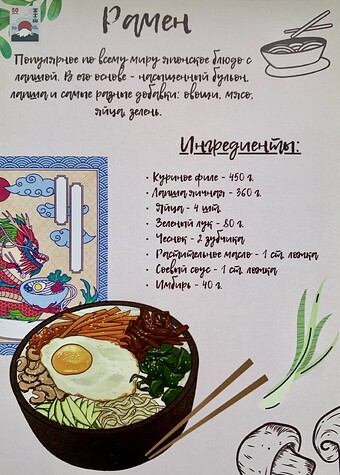 Рамен
Популярное по всему миру японское блюдо с
лапшой. В его основе - насыщенный бульон,
лапша и самые разные добавки: овощи, мясо,
яйца, зелень.
Ингредиенты:
· Куриное филе - 450 г.
· Лапша яичная - 360 г.
· Яйца - 4 шт.
· Зеленый лук - 80 г.
· Чеснок - 2 зубчика
· Растительное масло - 1 ст. ложка
· Соевый соус - 1 ст. ложка
· Имбирь - 40 г.